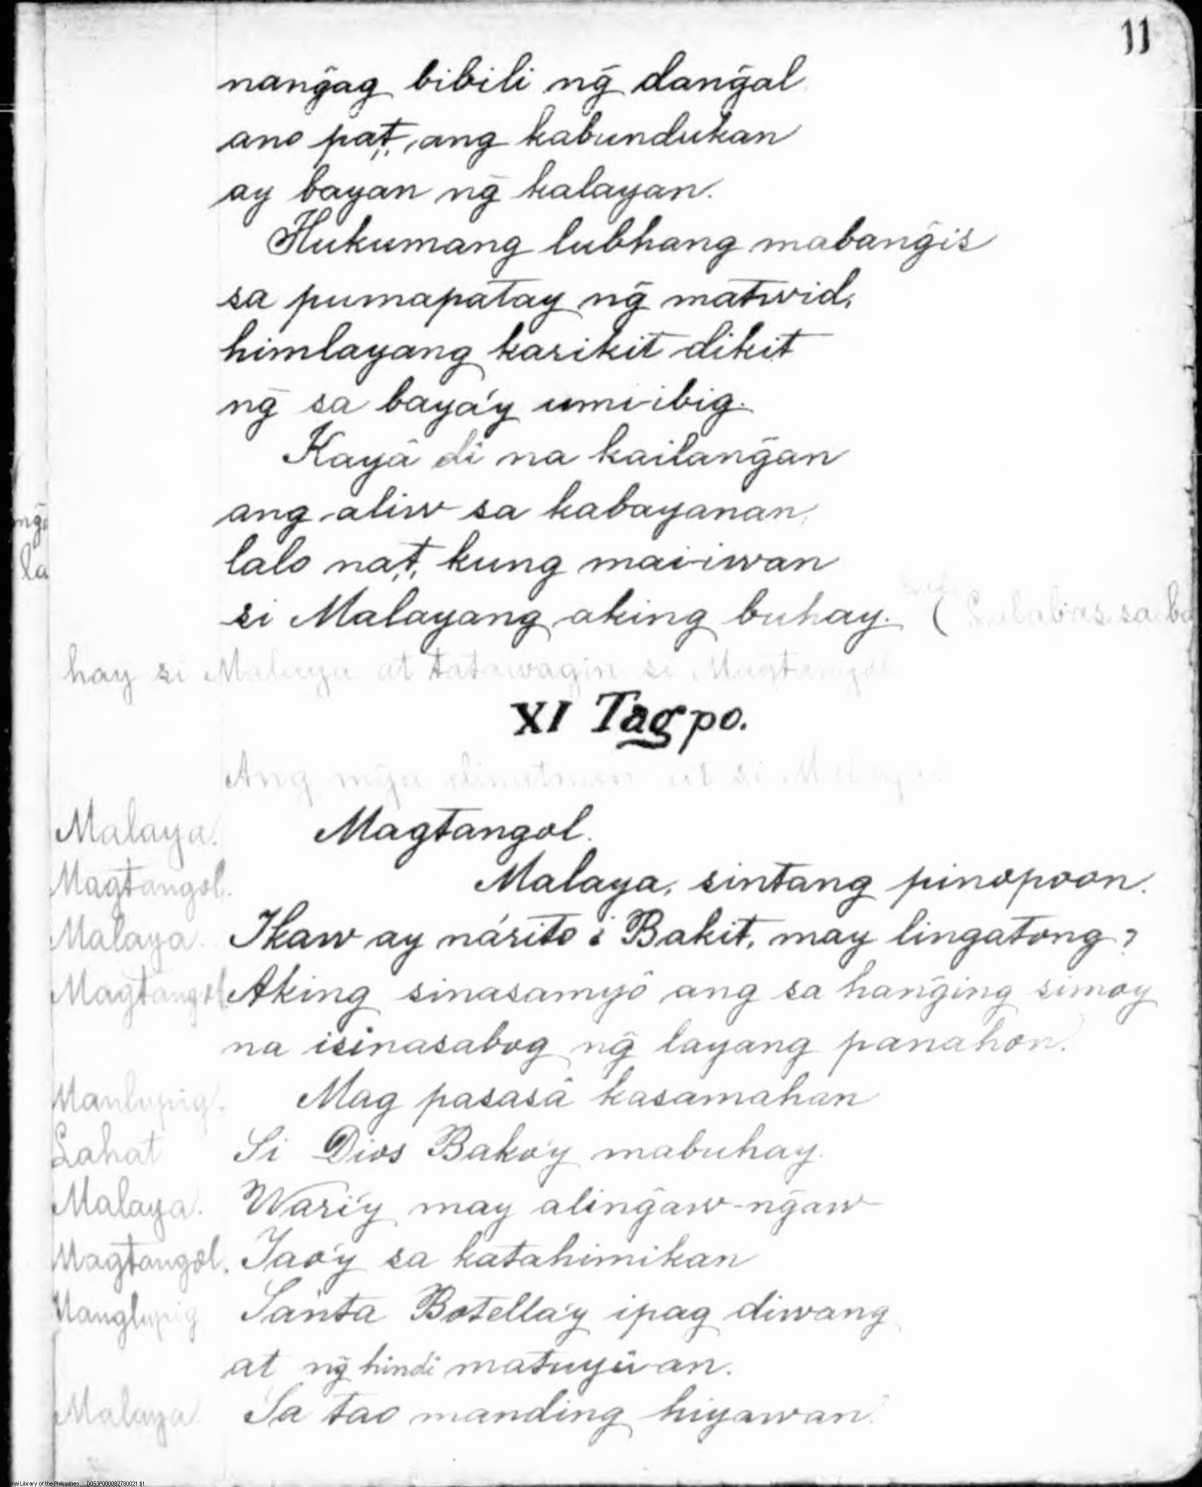 11
nang̃ag bibili ng̃ dang̃al
ano pat,, ang kabundukan
ay bayan ng̃ kalayan.
Hukumang lubhang mabang̃is
sa pumapatay ng̃ matwid,
himlayang karikit dikit
ng̃ sa baya'y umi-ibig.
Kayâ di na kailang̃an
ang aliw sa kabayanan,
lalo nat,, kung mai-iwan
si Malayang aking buhay. (Lalabas sa ba
hay si Malaya at tatawagin si Magtangol
XI Tagpo.
Ang mg̃a at si Malaya
Malaya. Magtangol.
Magtangol. Malaya, sintang pinopoon.
Malaya. Ikaw ay nárito ¿ Bakit, may lingatong?
Magtangol Aking sinasamyô ang sa hang̃ing simoy
na isinasabog ng̃ layang panahon.
Manlupig. Mag pasasâ kasamahan
Lahat Si Dios Bako'y mabuhay.
Malaya. Wari'y may aling̃aw-ng̃aw
Magtangol. Tao'y sa katahimikan
Manglupig Santa Botella'y ipag diwang
at ng̃ hindi matuyú-an.
Malaya Sa tao manding hiyawan.
ng̃a
la